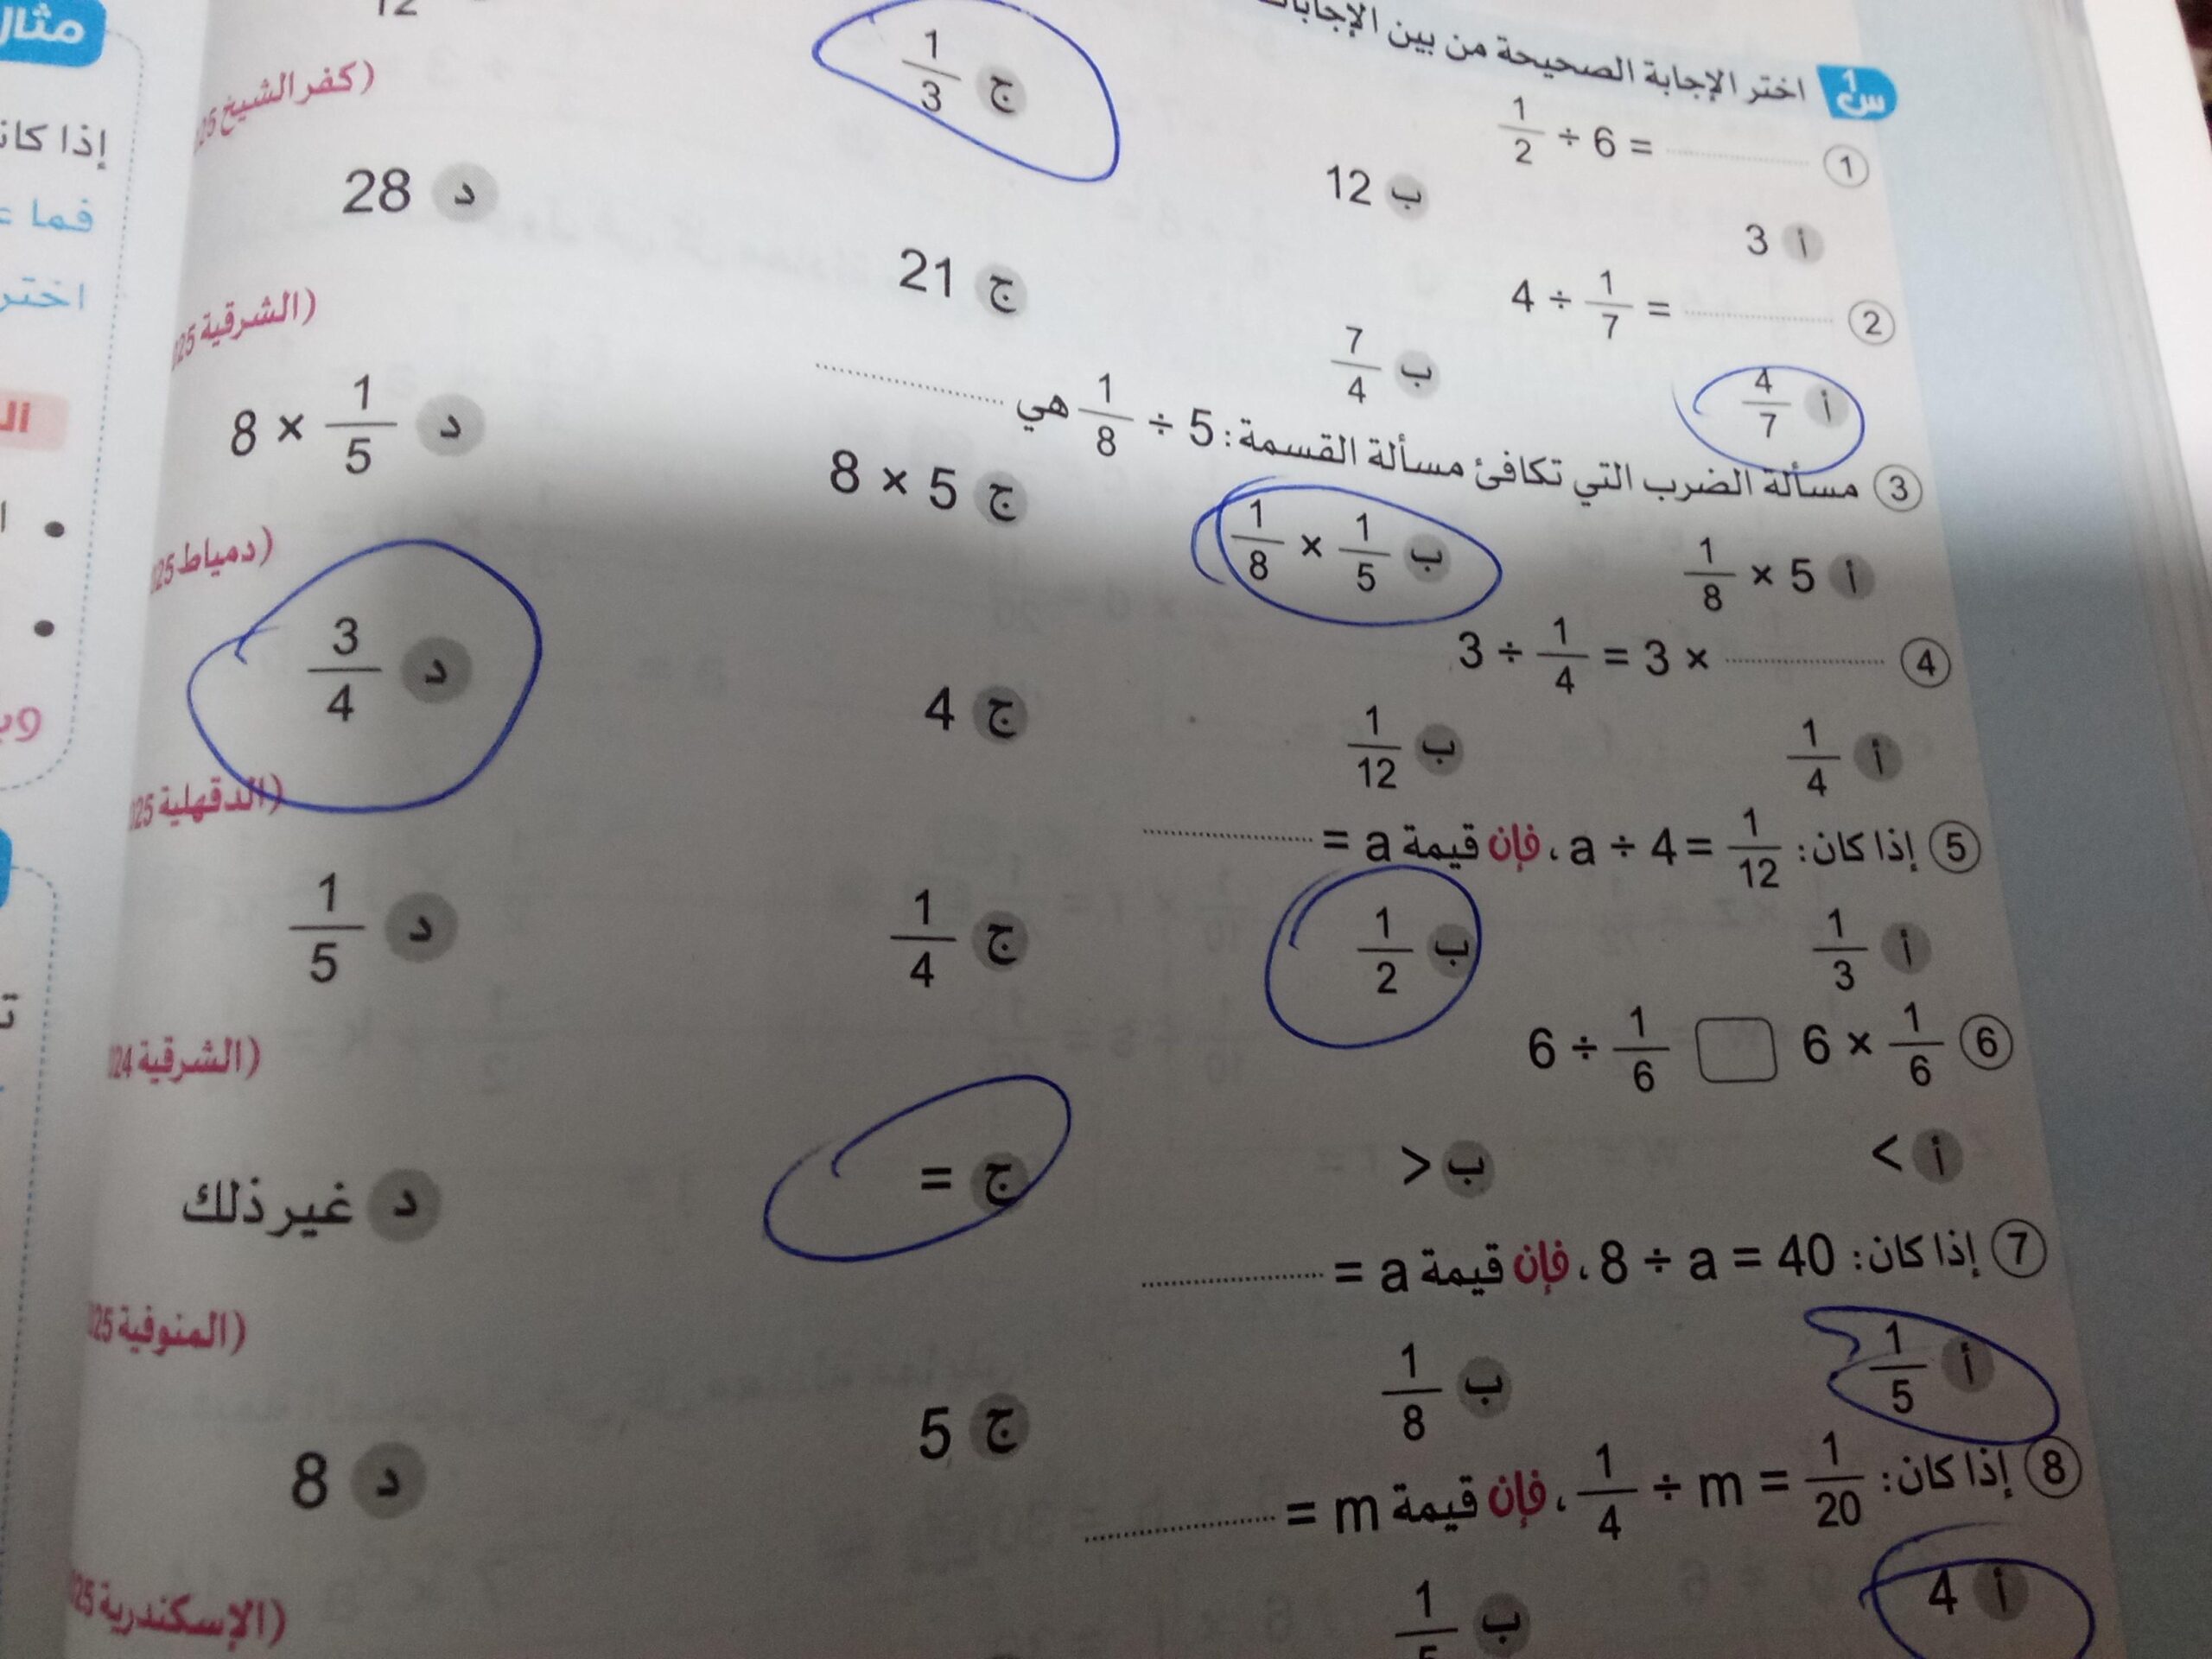 س1 اختر الإجابة الصحيحة من بين
① 1/2 ÷ 6 = ..........
أ 3 ب 12 ج 1/3
(كفر الشيخ
② 4 ÷ 1/7 = ..........
أ 4/7 ب 7/4 ج 21 د 28
(الشرقية
③ مسألة الضرب التي تكافئ مسألة القسمة: 1/8 ÷ 5 هي ..........
أ 1/8 × 5 ب 1/8 × 1/5 ج 8 × 5 د 8 × 1/5
(دمياط
④ 3 ÷ 1/4 = 3 × ..........
أ 1/4 ب 1/12 ج 4 د 3/4
(الدقهلية
⑤ إذا كان: a ÷ 4 = 1/12، فإن قيمة a = ..........
أ 1/3 ب 1/2 ج 1/4 د 1/5
(الشرقية
⑥ 6 ÷ 1/6 □ 6 × 1/6
أ < ب > ج = د غير ذلك
(المنوفية
⑦ إذا كان: 8 ÷ a = 40، فإن قيمة a = ..........
أ 1/5 ب 1/8 ج 5 د 8
(الإسكندرية
⑧ إذا كان: 1/4 ÷ m = 1/20، فإن قيمة m = ..........
أ 4 ب
مثال